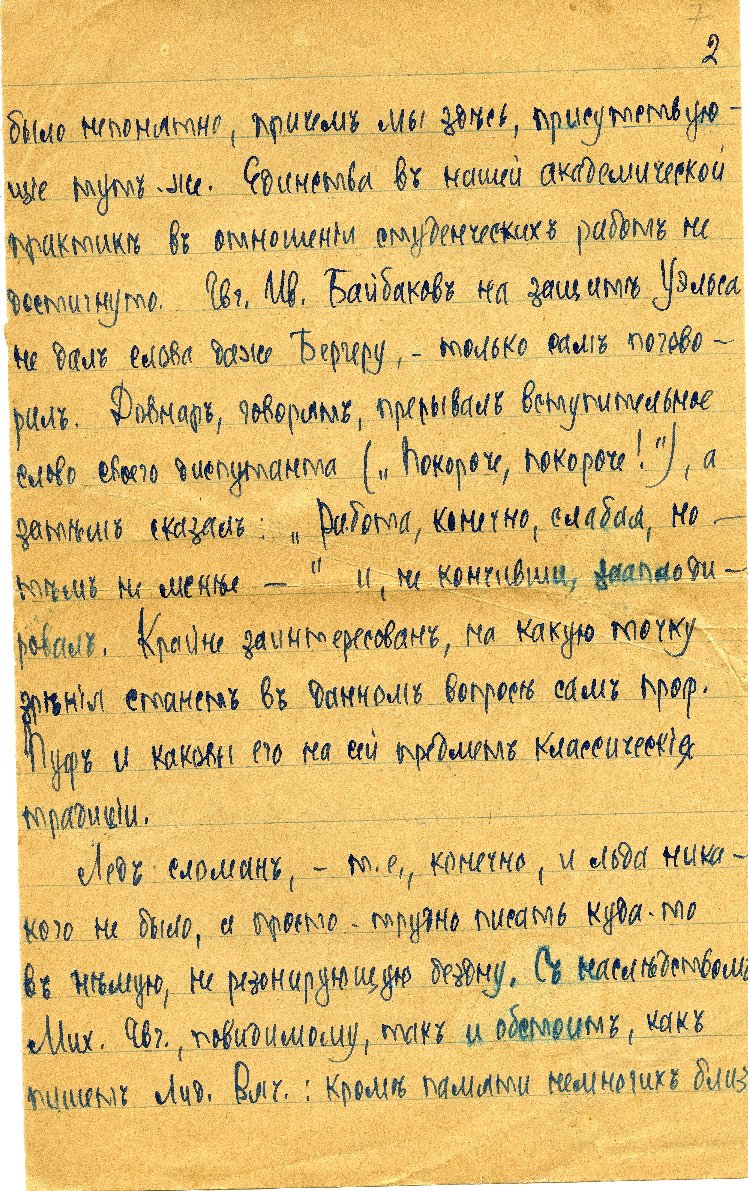 2
было непонятно, причемъ мы здѣсь, присутствую-
щіе тутъ-же. Единства въ нашей академической
практикѣ въ отношеніи студенческихъ работъ не
достигнуто. Евг. Ив. Байбаковъ на защитѣ Уэльса
не далъ слова даже Бергеру, - только самъ погово-
рилъ. Довнаръ, говорятъ, прерывалъ вступительное
слово своего диспутанта („Покороче, покороче!“), а
затѣмъ сказалъ: „Работа, конечно, слабая, но —
тѣмъ не менѣе — “ и, не кончивши, зааплоди-
ровалъ. Крайне заинтересованъ, на какую точку
зрѣнія станетъ въ данномъ вопросѣ самъ проф.
Пуфъ и каковы его на сей предметъ классическія
традиціи.
Ледъ сломанъ, - т.е., конечно, и льда ника-
кого не было, а просто - трудно писать куда-то
въ нѣмую, не резонирующую бездну. Съ наслѣдствомъ
Мих. Евг., повидимому, такъ и обстоитъ, какъ
пишетъ Лид. : кромѣ памяти немногихъ близ